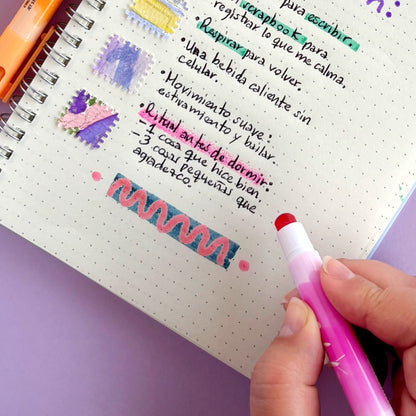 para escribir.
scrapbook para
registrar lo que me calma.
• Respirar para volver.
• Una bebida caliente sin
celular.
• Movimiento suave:
estiramiento y bailar.
• Ritual antes de dormir:
- 1 cosa que hice bien
- 3 cosas pequeñas que
agradezco.